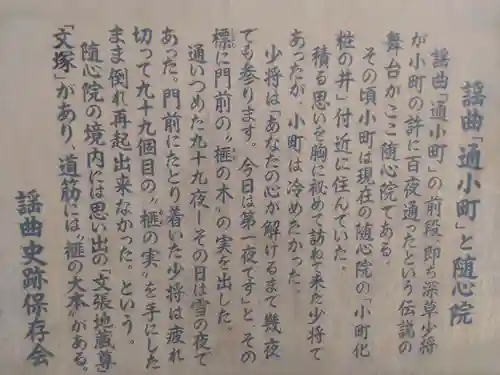 謡曲「通小町」と随心院
謡曲「通小町」の前段、即ち深草少将
が小町の許に百夜通ったという伝説の
舞台がここ随心院である。
その頃小町は現在の随心院の「小町化
粧の井」付近に住んでいた。
積る思いを胸に秘めて訪ねて来た少将で
あったが、小町は冷めたかった。
少将は「あなたの心が解けるまで幾夜
でも参ります。今日は第一夜です」と、その
標に門前の“榧の木”の実を出した。
通いつめた九十九夜ーその日は雪の夜で
あった。門前にたどり着いた少将は疲れ
切って九十九個目の“榧の実”を手にした
まま倒れ再起出来なかった。という。
随心院の境内には思い出の「文張地蔵尊」
「文塚」があり、道筋には“榧の大木”がある。
謡曲史跡保存会